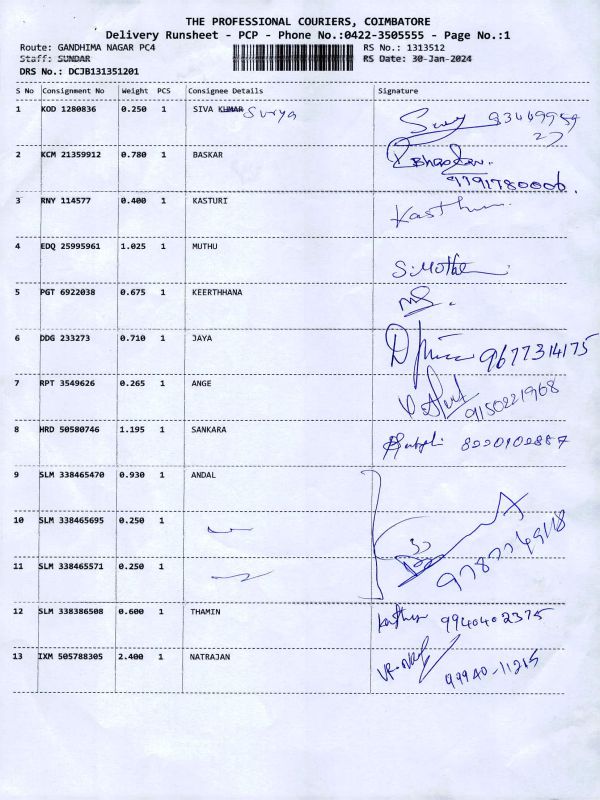 THE PROFESSIONAL COURIERS, COIMBATORE
Delivery Runsheet - PCP - Phone No.:0422-3505555 - Page No.:1
Route: GANDHIMA NAGAR PC4
RS No.: 1313512
Staff: SUNDAR
RS Date: 30-Jan-2024
DRS No.: DCJB131351201
S No Consignment No Weight PCS Consignee Details Signature
1 KOD 1280836 0.250 1 SIVA KUMAR Surya
2 KCM 21359912 0.780 1 BASKAR Bhaskar.
9791780006.
3 RNY 114577 0.400 1 KASTURI
4 EDQ 25995961 1.025 1 MUTHU
5 PGT 6922038 0.675 1 KEERTHHANA
6 DDG 233273 0.710 1 JAYA 9677314175
7 RPT 3549626 0.265 1 ANGE 9150221968
8 HRD 50580746 1.195 1 SANKARA
9 SLM 338465470 0.930 1 ANDAL
10 SLM 338465695 0.250 1
11 SLM 338465571 0.250 1
12 SLM 338386508 0.600 1 THAMIN 9940402375
13 IXM 505788305 2.400 1 NATRAJAN 99940-11215